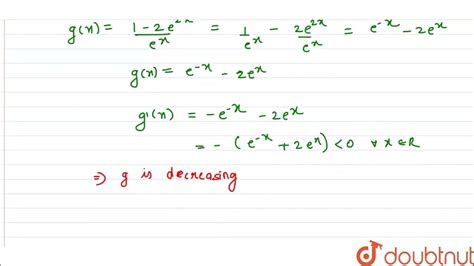 g(x) = 1 - 2e^{2x} / e^x = 1 / e^x - 2e^{2x} / e^x = e^{-x} - 2e^x
g(x) = e^{-x} - 2e^x
g'(x) = -e^{-x} - 2e^x
= - (e^{-x} + 2e^x) < 0 ∀ x ∈ R
⇒ g is decreasing
doubtnut